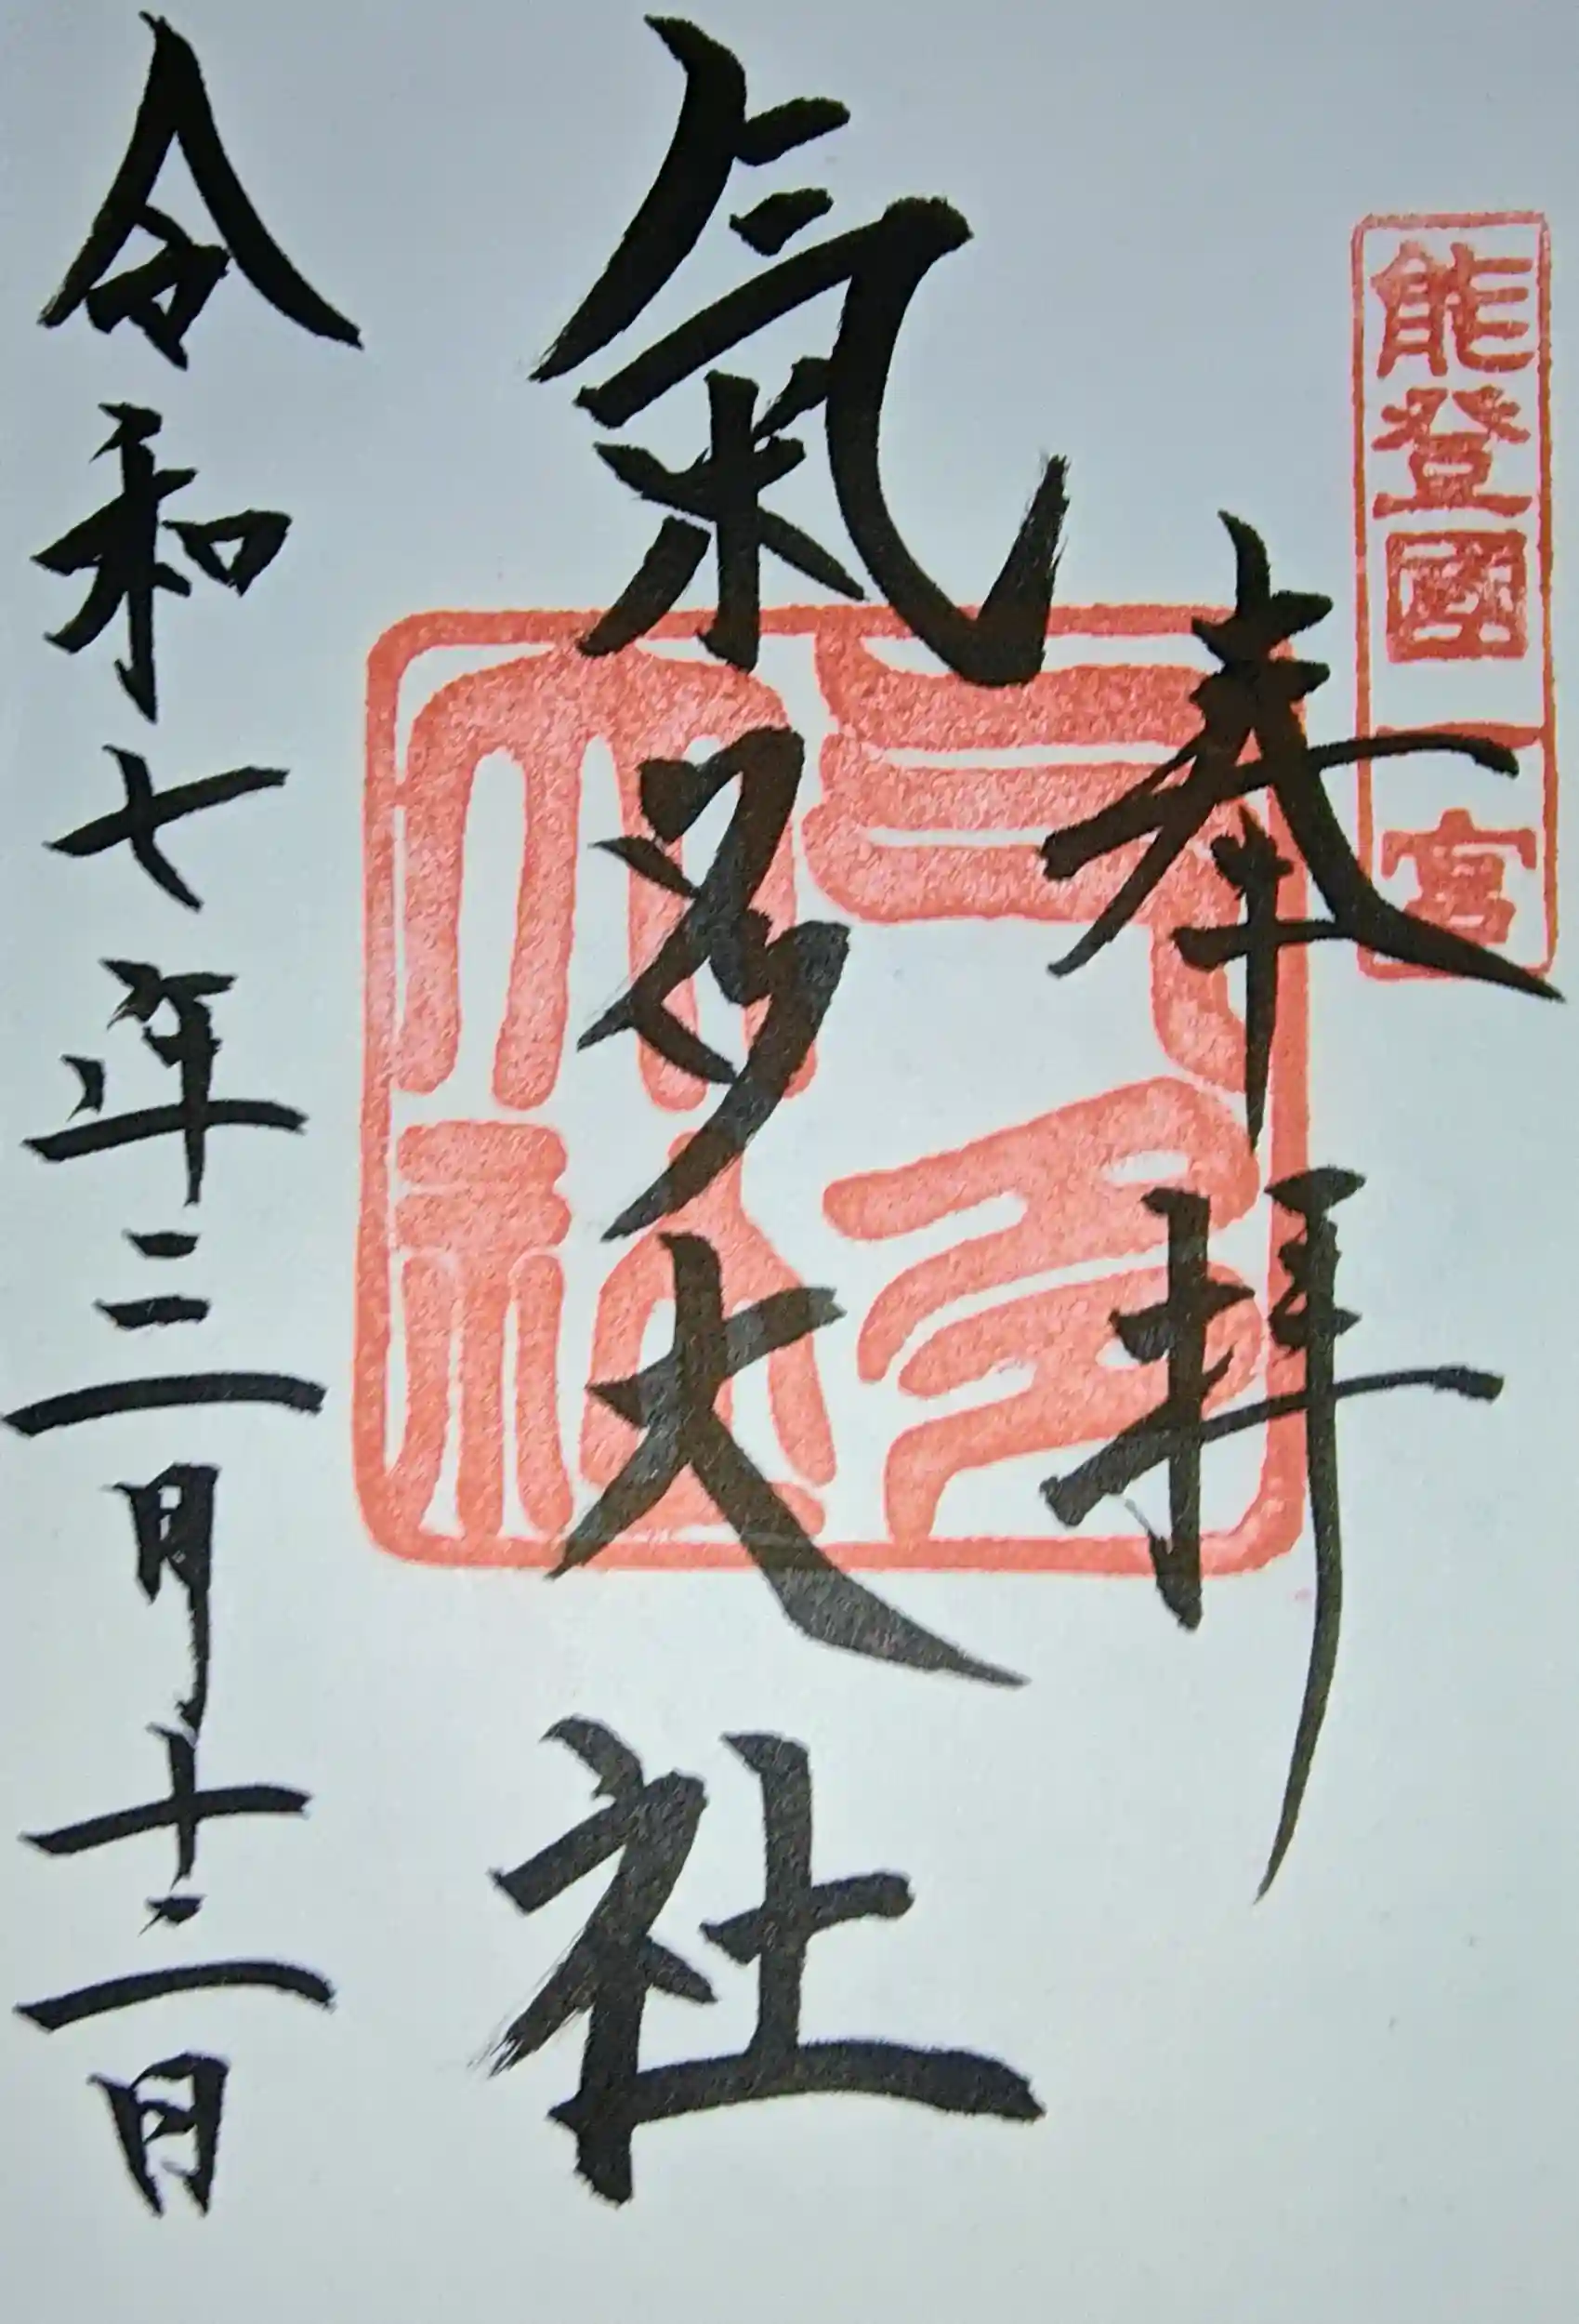 能登國一宮
奉拝
氣多大社
气多
大社
令和七年三月十二日